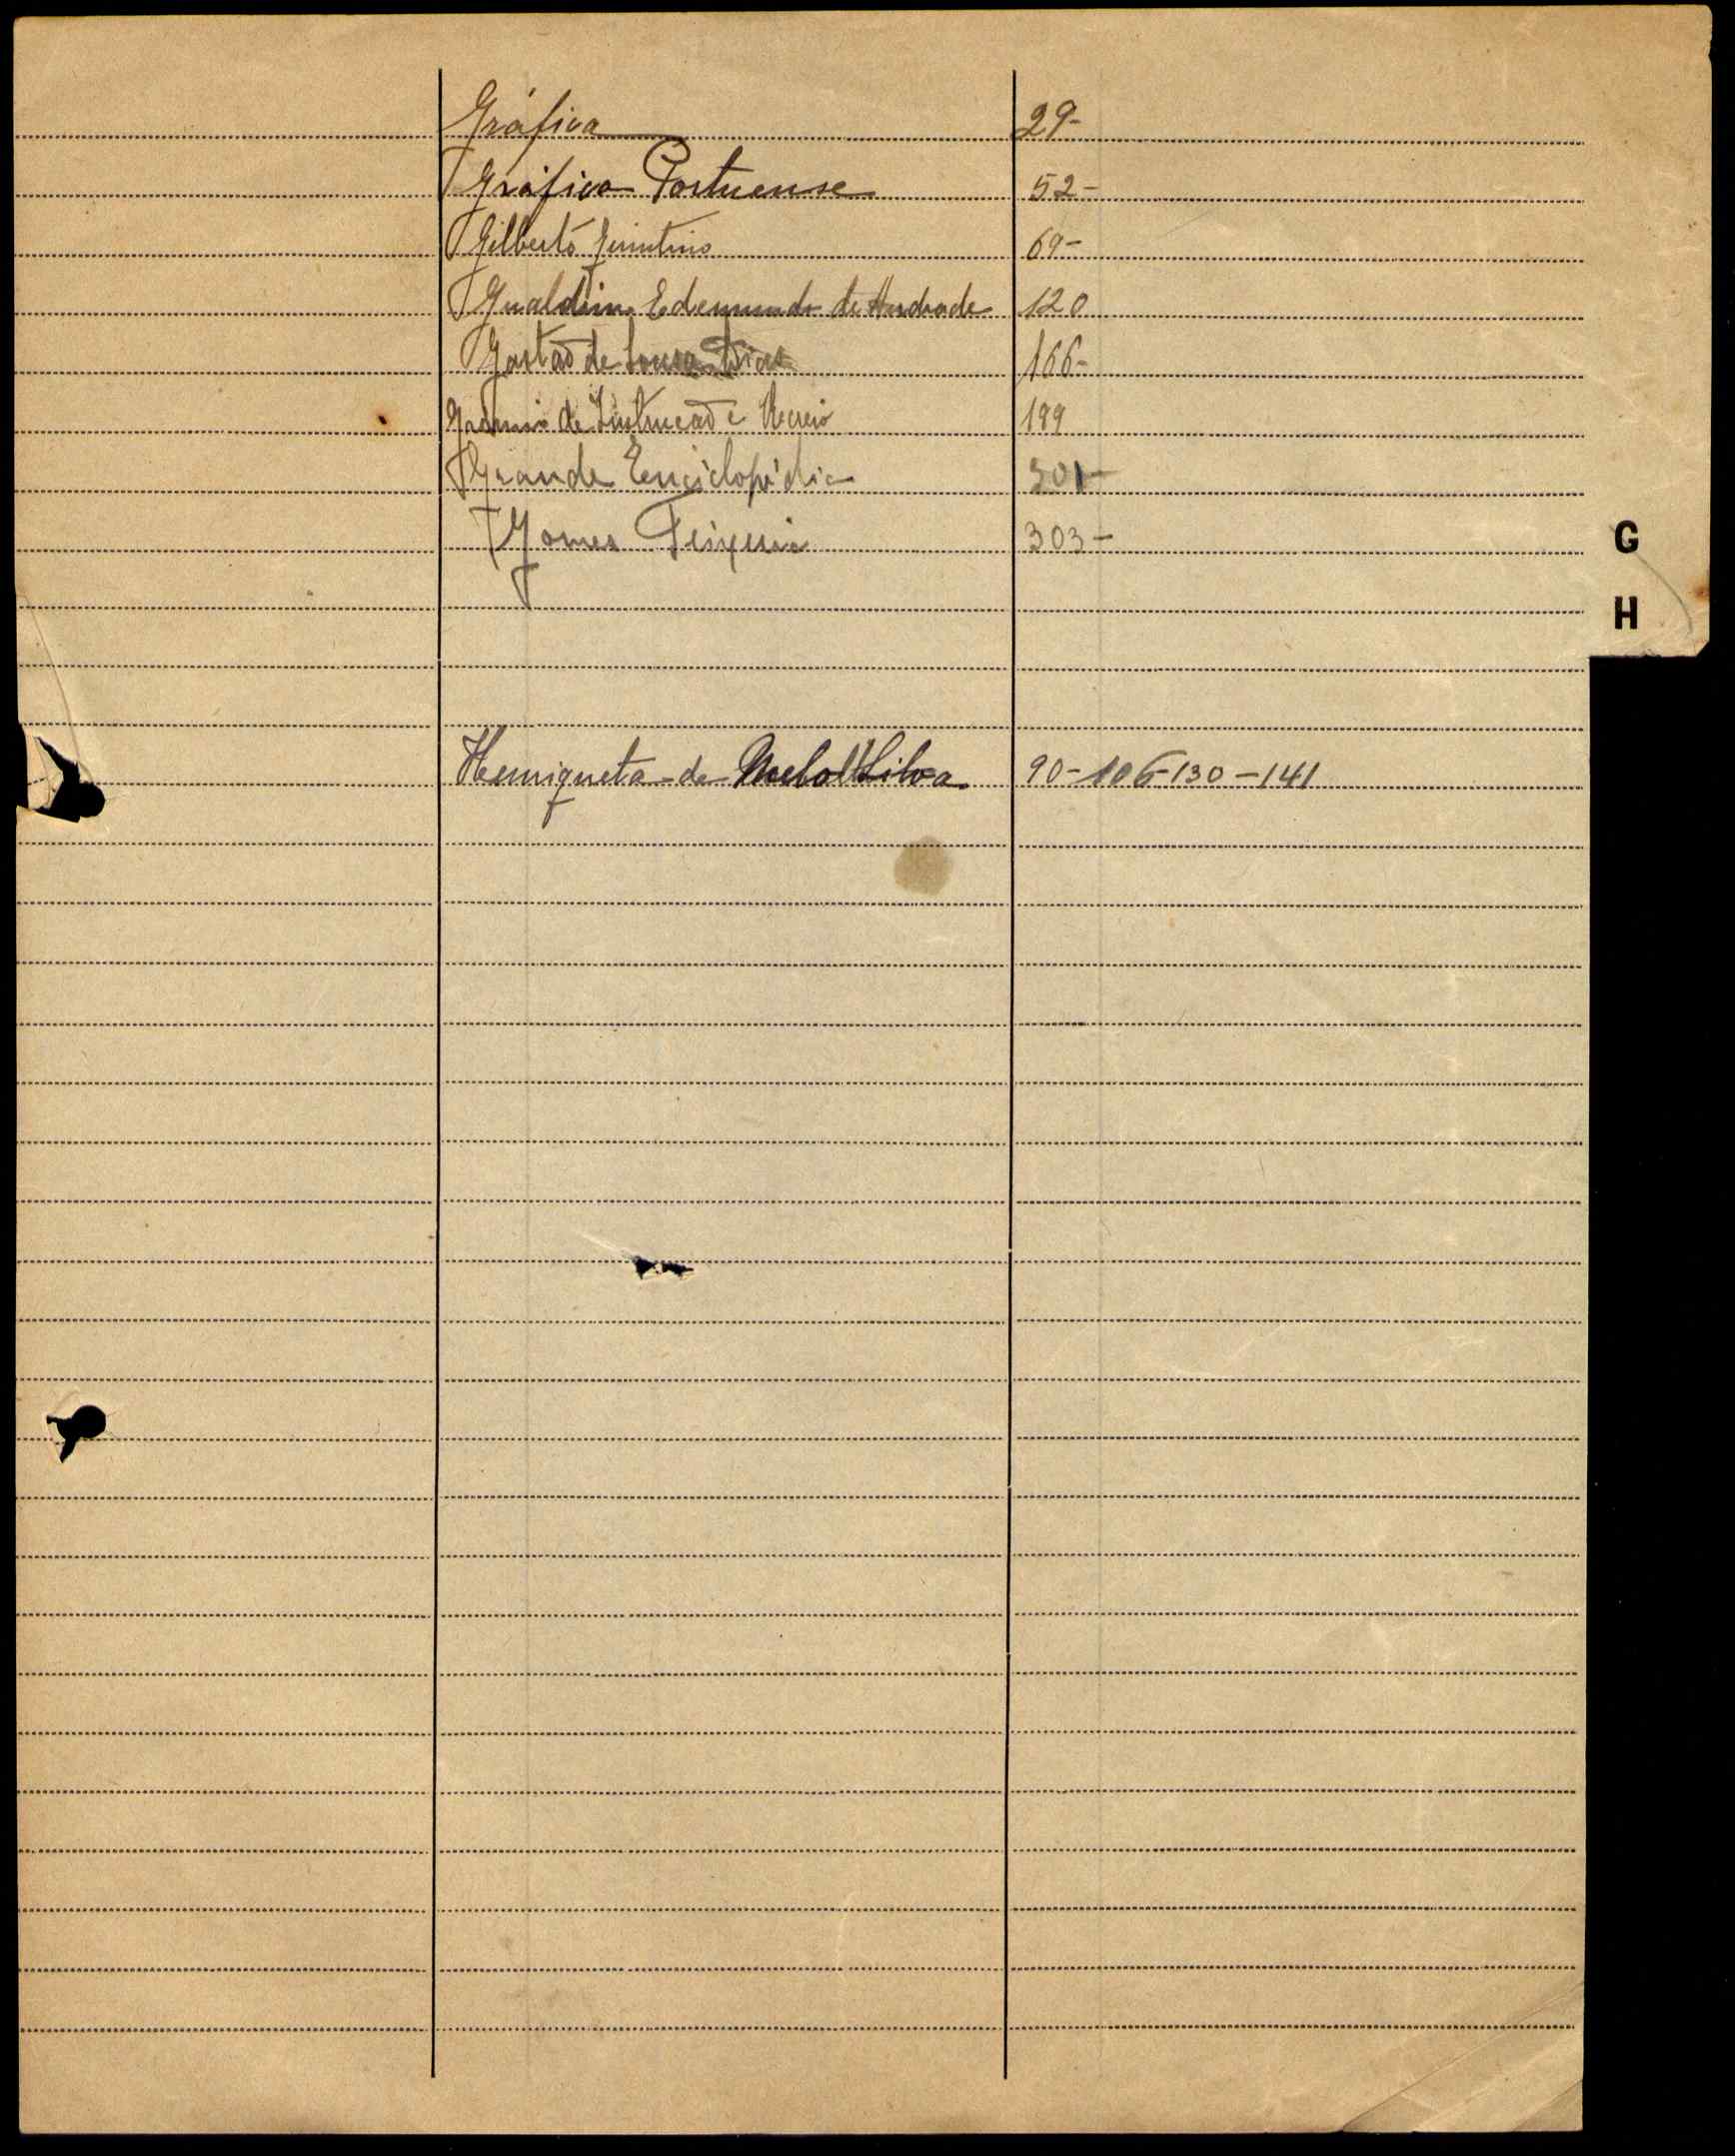 Gráfica 29-
Gráfica Portuense 52-
Gilberto Quintino 69-
Gualdim Edemundo de Andrade 120
Gastão de Sousa Dias 166-
Grémio de Instrucão e Recreio 199
Grande Enciclopédia 301-
Gomes Teixeira 303-
G
H
Henriqueta de Melo Silva 90-106-130-141